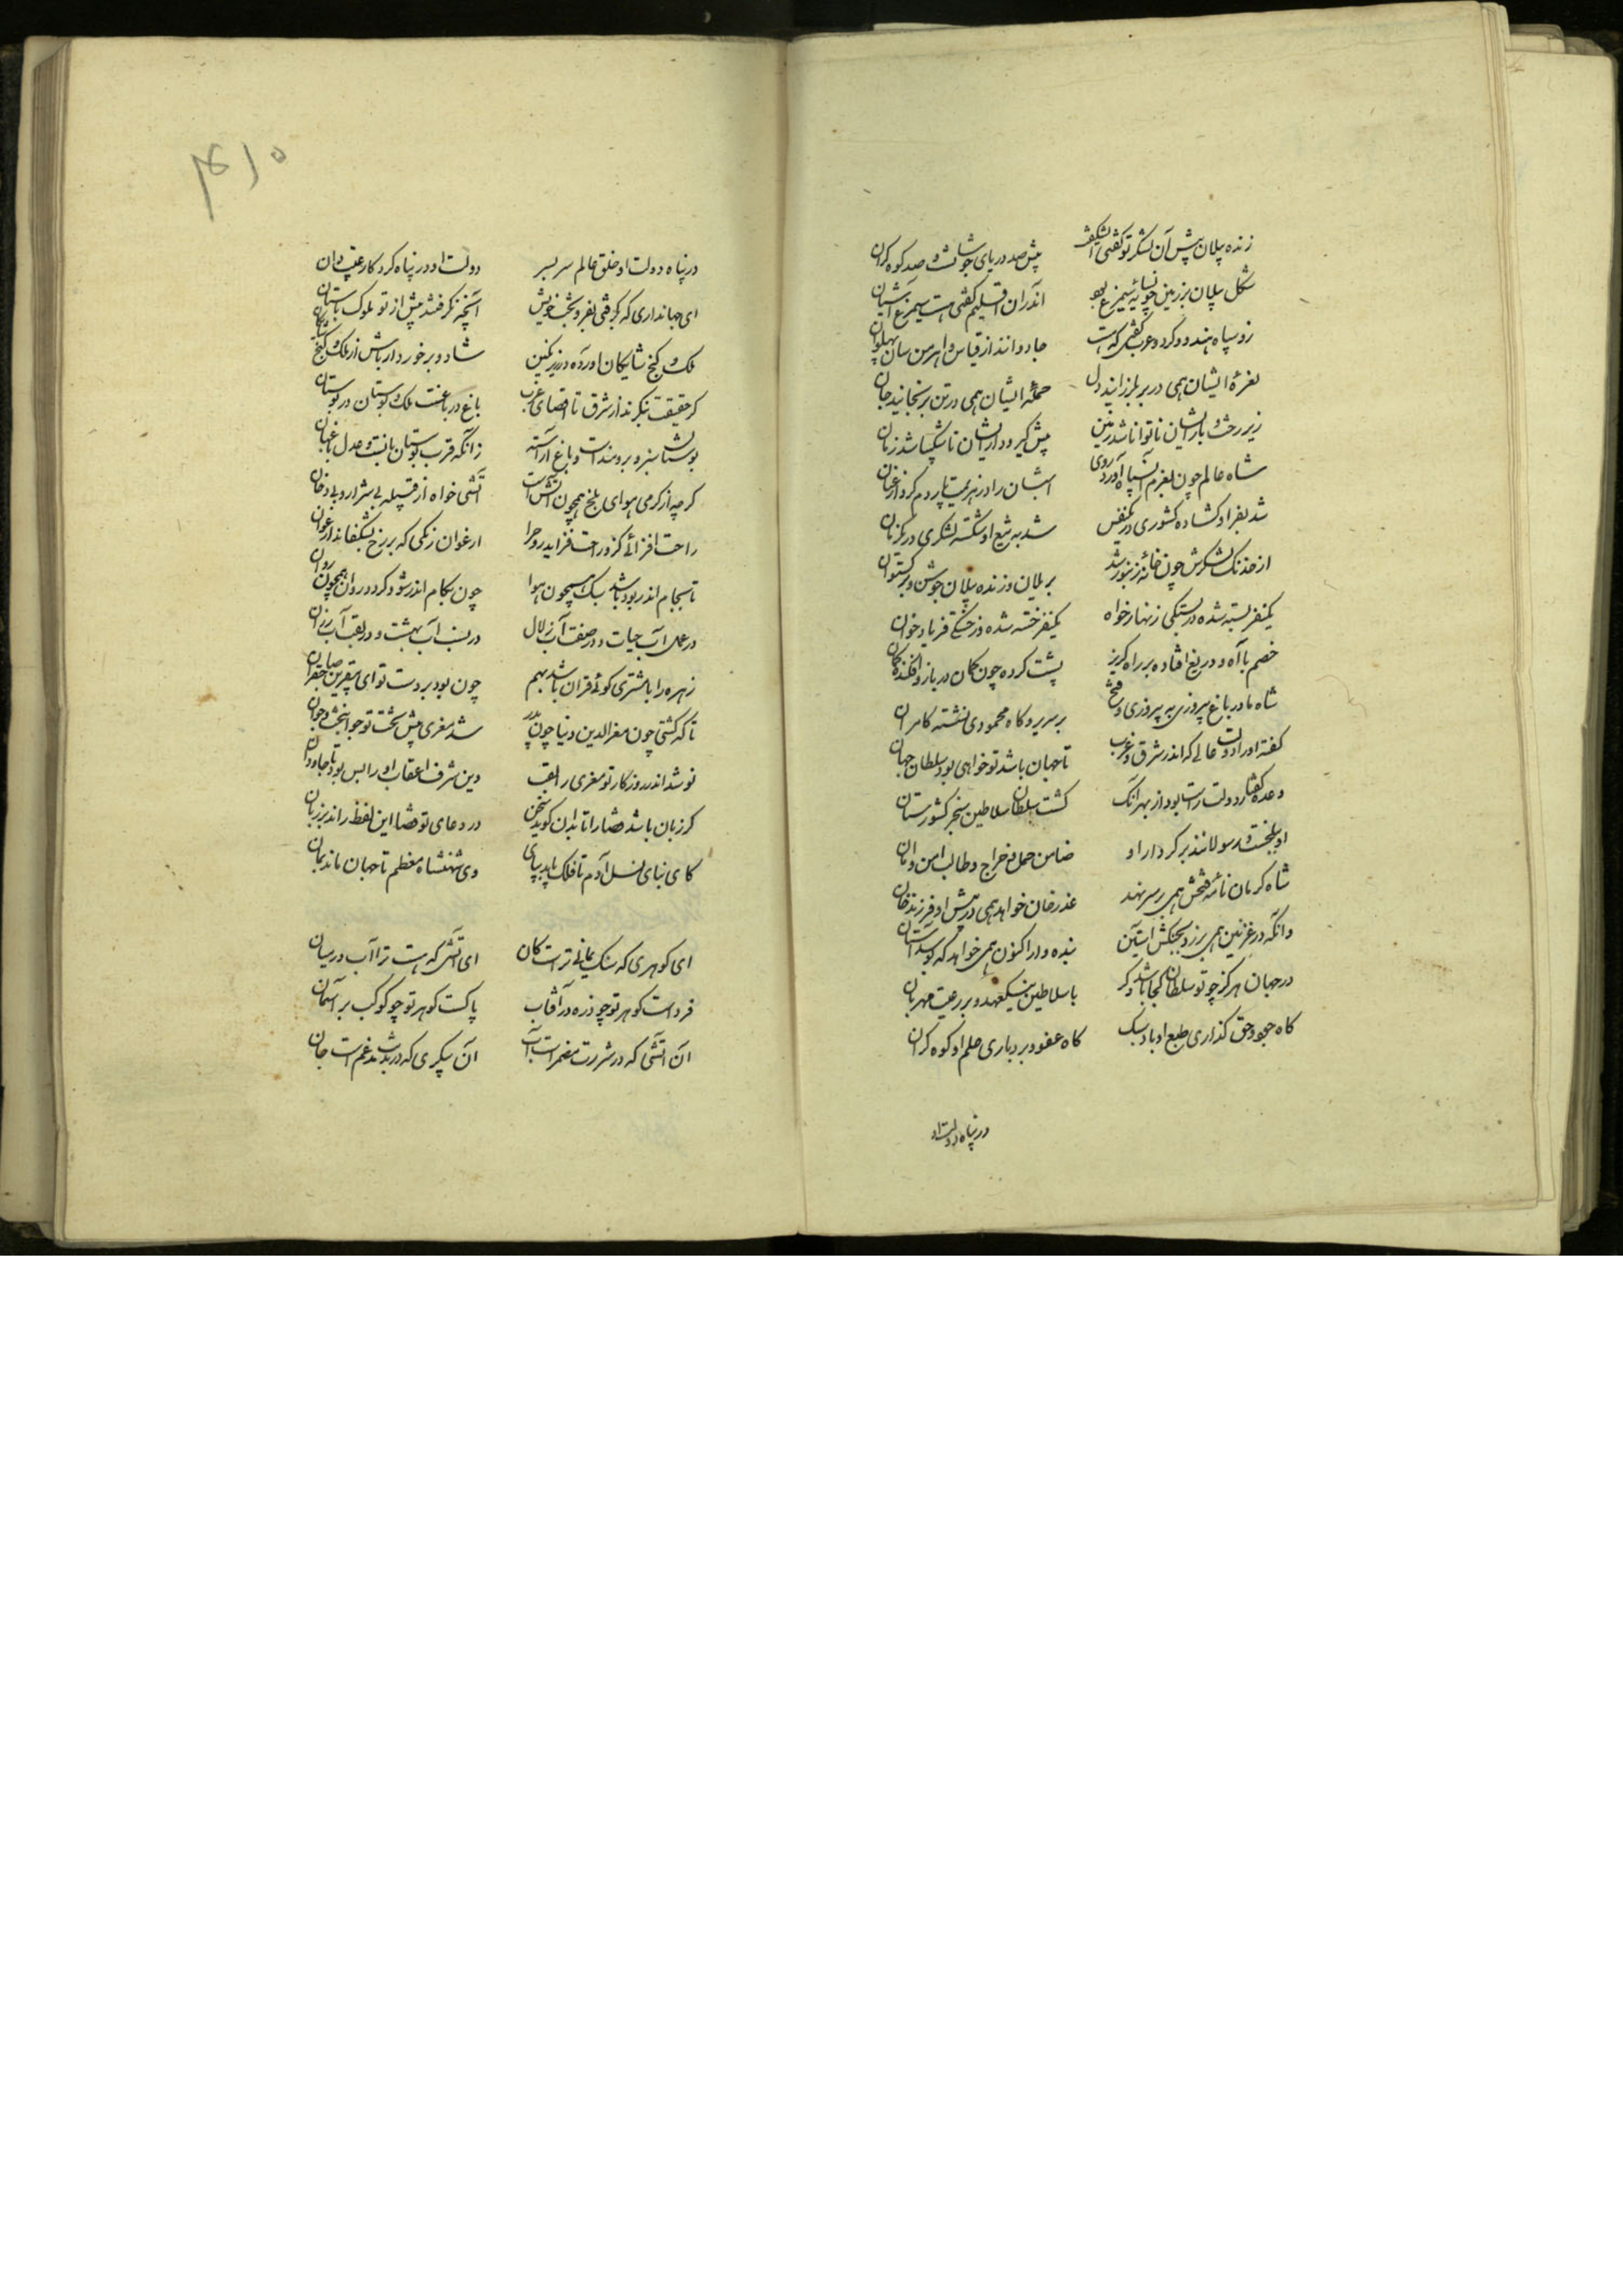 زنده پیلان پیش آن لشکر تو گفتی اشکیف
پیش صد دریای جوشانست و صد کوه کران
شکل پیلان بر زمین چون سایه سیمرغ بود
اندران اقلیم گفتی هست سیمرغ آشیان
زو سپاه هندو و کرد و عرب گفتی که هست
جادوانند از قیاس و اهرمن سان پهلوان
نعره ایشان همی در بر بلرزانید دل
حمله ایشان همی در تن برنجانید جان
زیر رخت و بار ایشان ناتوانا شد زمین
پیش گیر و دار ایشان ناشکیبا شد زمان
شاه عالم چون بعزم آن سپاه آورد روی
ایشان را در هزیمت پاردم کرد از عنان
شد بفر او کشاده کشوری در یکنفس
شد به تیغ او شکسته لشکری در یکزمان
از خدنک لشکرش چون خانه زنبور شد
بر یلان و زنده پیلان جوشن و برگستوان
یکنفر بسته شده در بستکی زنهار خواه
یکنفر خسته شده در خستگی فریاد خوان
خصم با آه و دریغ افتاده بر راه کریز
پشت کرده چون کمان در بازو افکنده کمان
شاه ما در باغ پیروزی به پیروزی و فتح
بر سریر و گاه محمودی نشسته کامران
گفته او را دولت عالی که اندر شرق و غرب
تا جهان باشد تو خواهی بود سلطان جهان
وعده و گفتار دولت راست بود از بهر آنک
گشت سلطان سلاطین سنجر کشورستان
او ببلخست و رسولانند بر کردار او
ضامن حمل و خراج و طالب امن و امان
شاه کرمان نامه فتحش همی بر سر نهد
عذر خان خواهد همی در پیش او فرزند خان
وانکه در غزنین همی برزد بجنکش آستین
بنده وار اکنون همی خواهد که بوسد آستان
در جهان هرگز چو تو سلطان کجا باشد دکر
با سلاطین نیکعهد و بر رعیت مهربان
گاه جود و حق گذاری طبع او باد سبک
گاه عفو و بردباری حلم او کوه کران
در پناه دولت او
۴۱۰
در پناه دولت او خلق عالم سر بسر
دولت او در پناه کردکار غیب دان
ای جهانداری که بگرفتی بفر و بخت خویش
آنچه نگرفتند پیش از تو ملوک باستان
ملک و گنج شایکان آورده در زیر نکین
شاد و برخوردار باش از ملک و گنج شایکان
گر حقیقت بنکرند از شرق تا اقصای غرب
باغ در باغست ملک و بوستان در بوستان
بوستانت سبز و برومند است و باغ آراسته
زانکه قرب بوستان بانست و عدل باغبان
گرچه از کرمی هوای بلخ همچون آتش است
آتشی خواه از قبیله بی شرار و بی دخان
راحت افزائی کزو راحت فزاید روح را
ارغوان رنکی که بر رخ بشکفاند ارغوان
تا بجام اندر بود باشد سبک همچون هوا
چون بکام اندر شود کردد روان همچون روان
در عمل آب حیات و در صفت آب زلال
در نسب آب بهشت و در لقب آب رزان
زهره را با مشتری گوئی قران باشد بهم
چون بود بر دست تو ای صاحبقران
تا که گشتی چون معزالدین و دنیا چون پدر
شد معزی پیش تخت تو جوانبخت و جوان
نو شد اندر روزگار تو معزی را لقب
وین شرف اعقاب او را بس بود تا جاودان
گر زبان باشد قضا را تا بدان گوید سخن
در دعای تو قضا این لفظ راند بر زبان
کای بنای نسل آدم تا فلک پاید بپای
وی شهنشاه معظم تا جهان ماند بمان
ای گوهری که سنک یمانی تراست کان
ای آتشی که هست ترا آب در میان
فرد است گوهر تو چو ذره در آفتاب
پاکست گوهر تو چو کوکب بر آسمان
آن آتشی که در شررت مضمر است آب
آن پیکری که در بدنت مدغم است جان